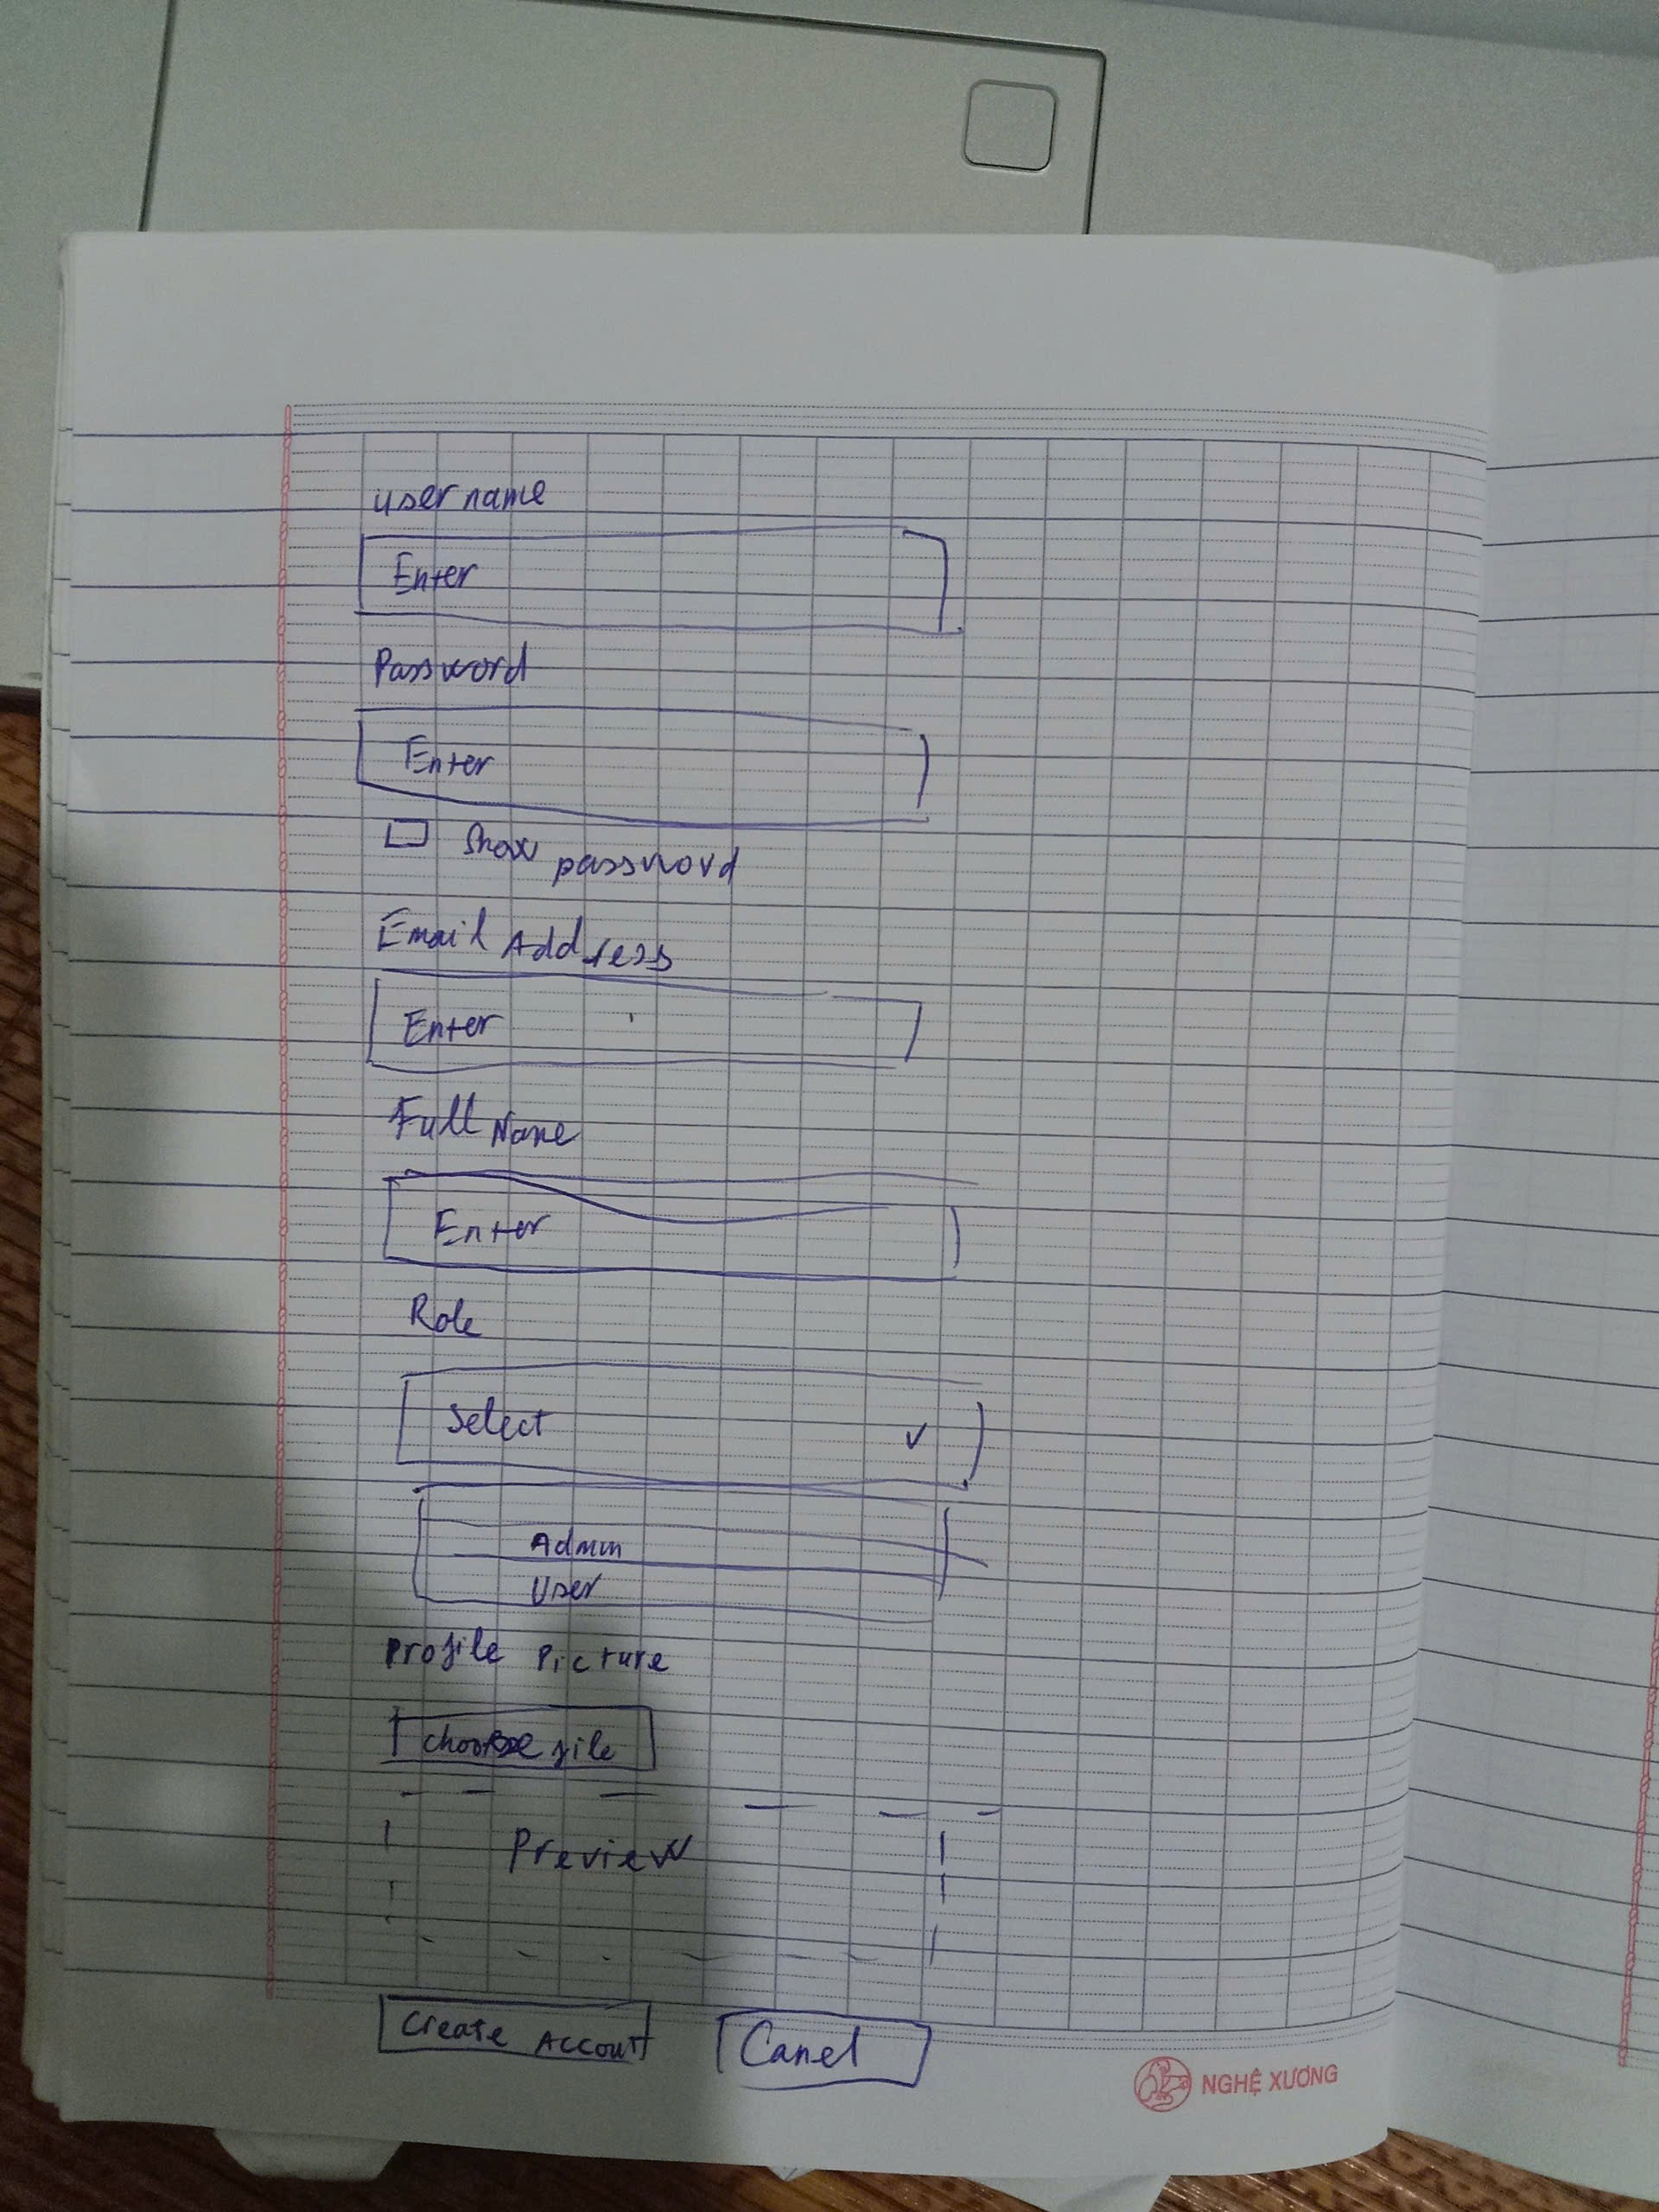 username
Enter
Password
Enter
Show password
Email Address
Enter
Full Name
Enter
Role
Select
Admin
User
Profile Picture
choose file
Preview
Create Account
Canel
NGHỆ XƯƠNG